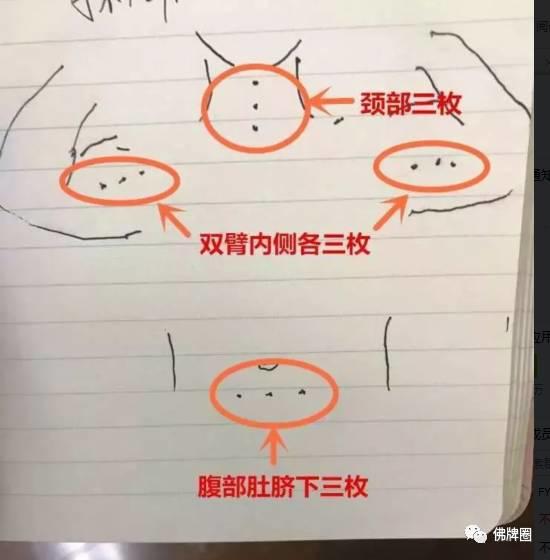 颈部三枚
双臂内侧各三枚
腹部肚脐下三枚
佛牌圈